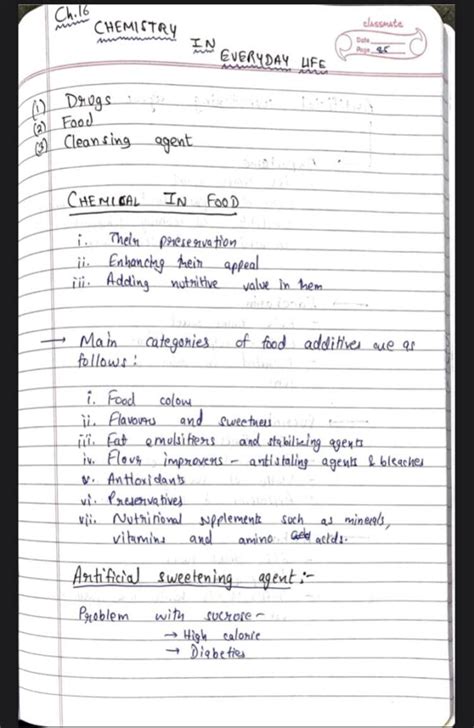 Ch.16
CHEMISTRY IN EVERYDAY LIFE
classmate
Date
Page 85
(1) Drugs
(2) Food
(3) Cleansing agent
CHEMICAL IN FOOD
i. Their preservation
ii. Enhancing their appeal
iii. Adding nutritive value in them
→ Main categories of food additives are as
follows:
i. Food colour
ii. Flavours and sweetners
iii. Fat emulsifiers and stabilizing agents
iv. Flour improvers - antistaling agents & bleaches
v. Antioxidants
vi. Preservatives
vii. Nutritional supplements such as minerals,
vitamins and amino acids.
Artificial sweetening agent:-
Problem with sucrose-
→ High calorie
→ Diabeties